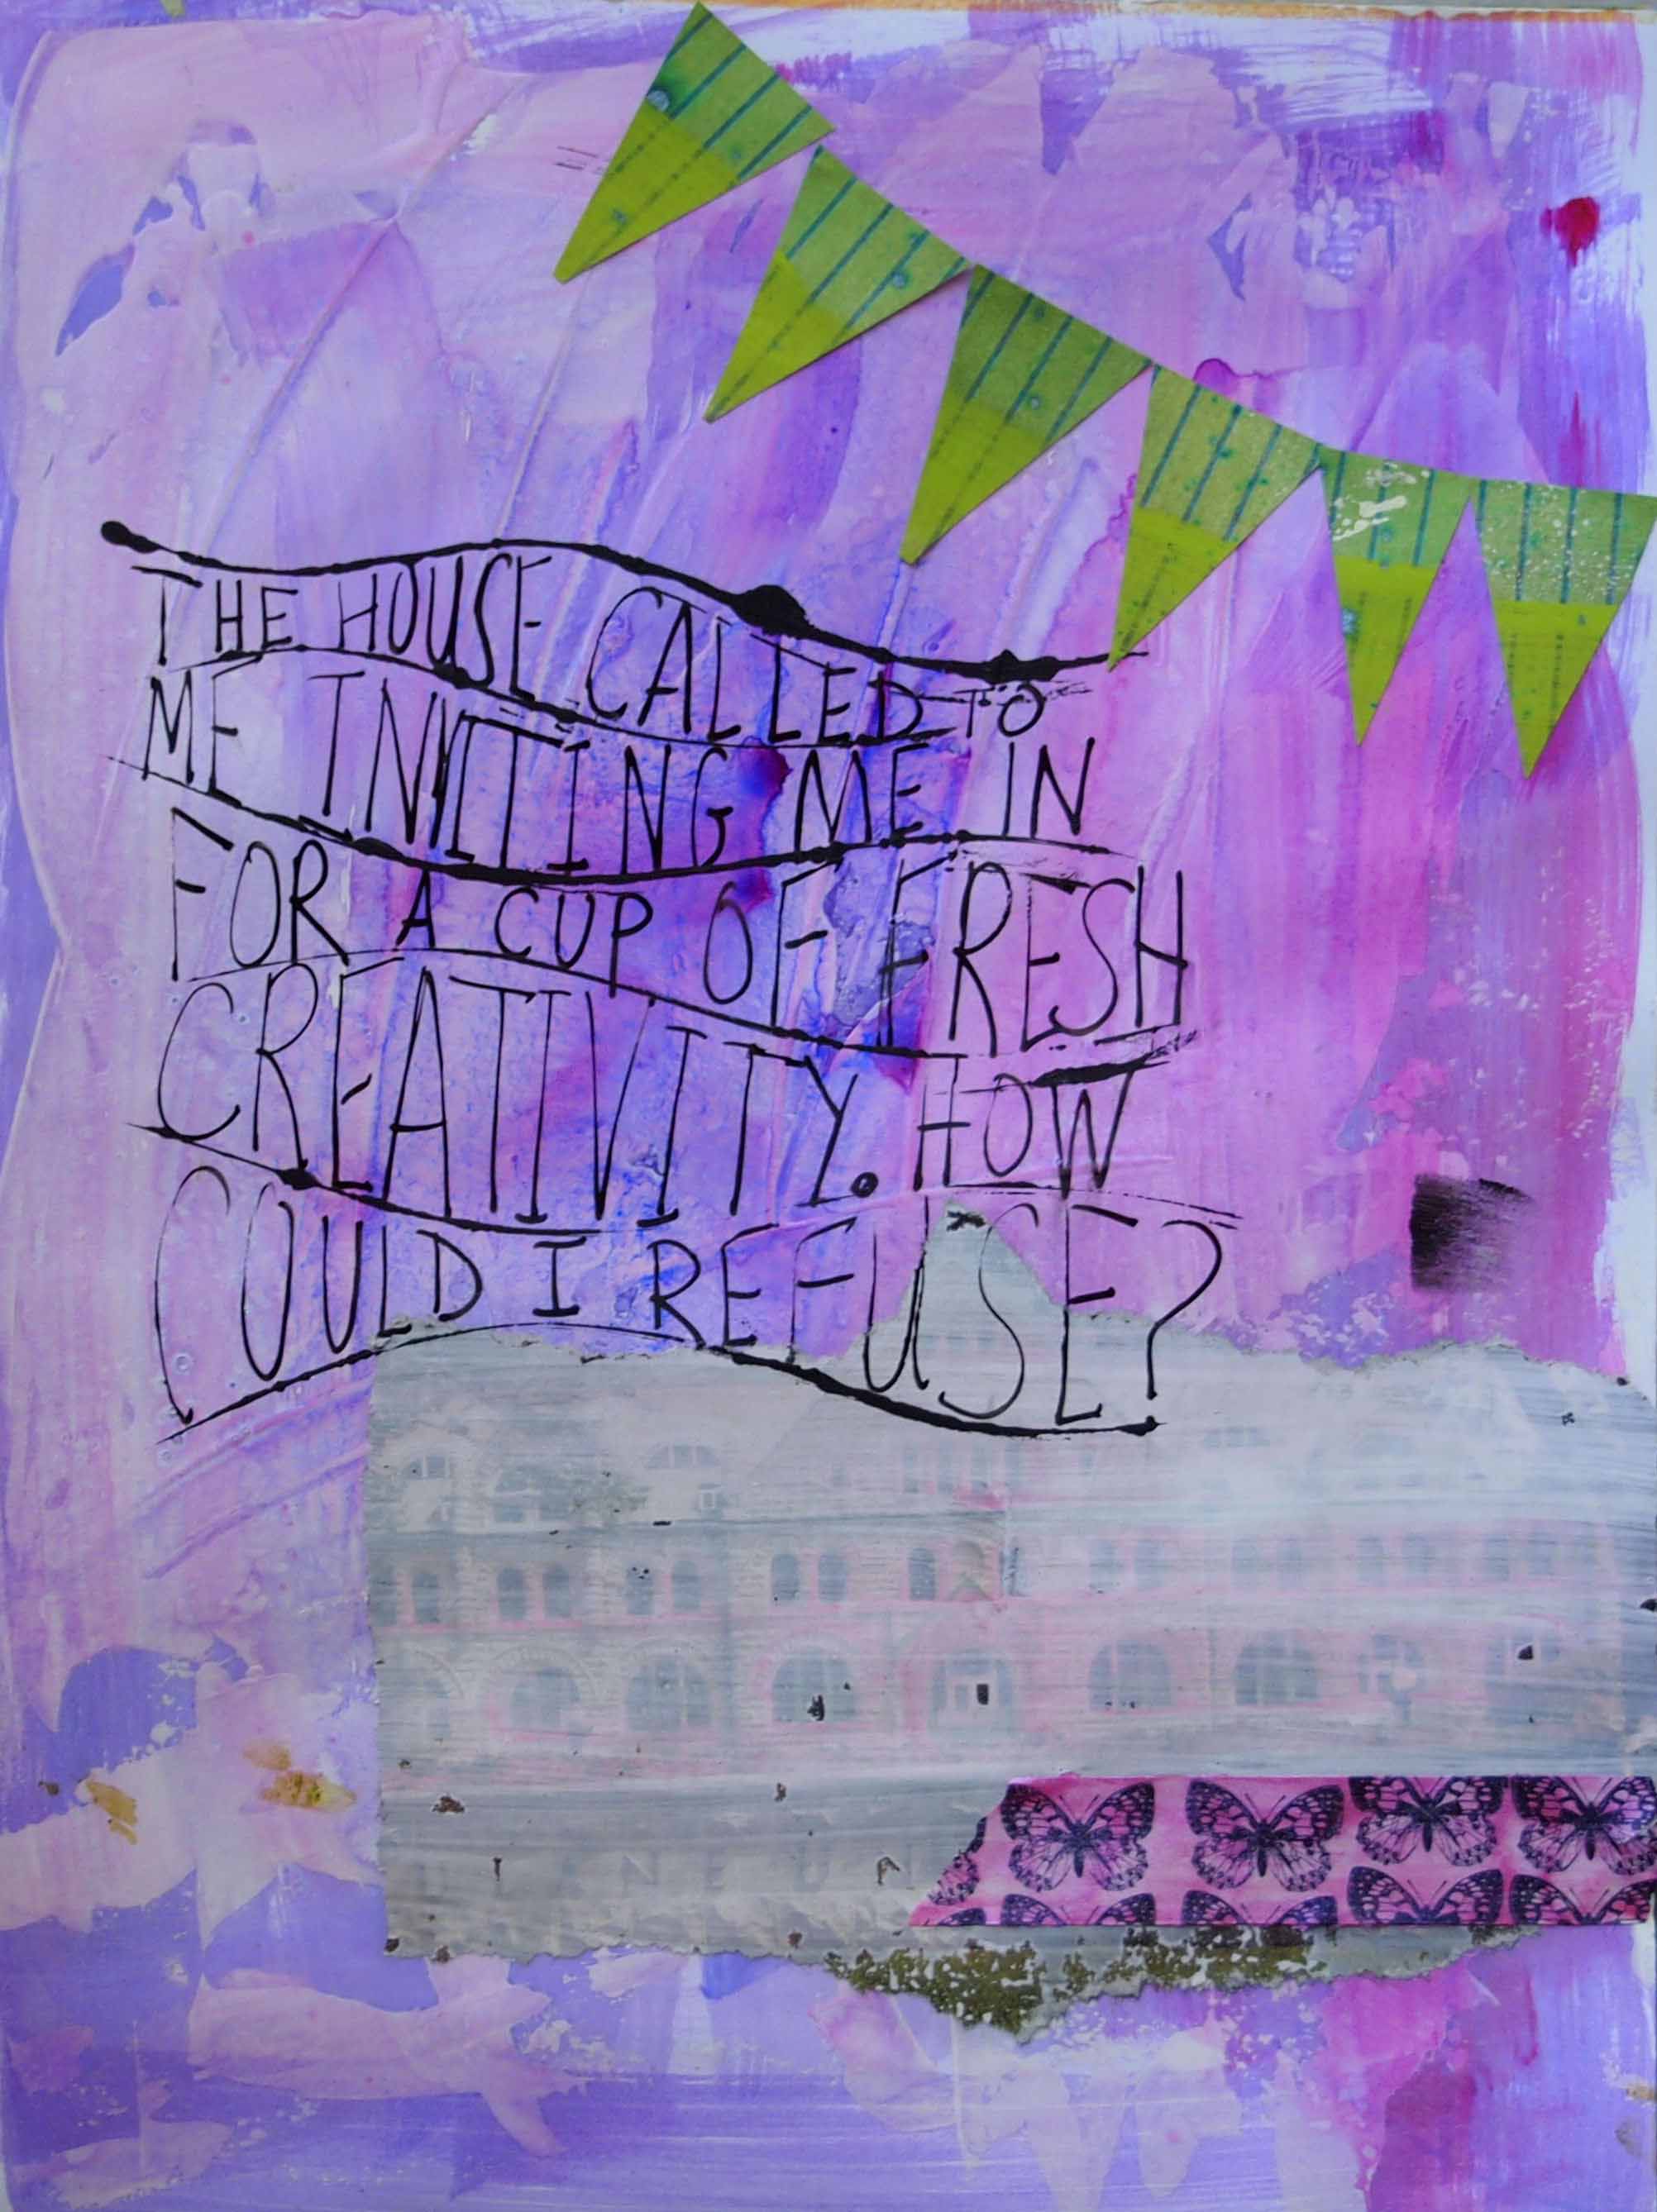 THE HOUSE CALLED TO
ME INVITING ME IN
FOR A CUP OF FRESH
CREATIVITY. HOW
COULD I REFUSE?